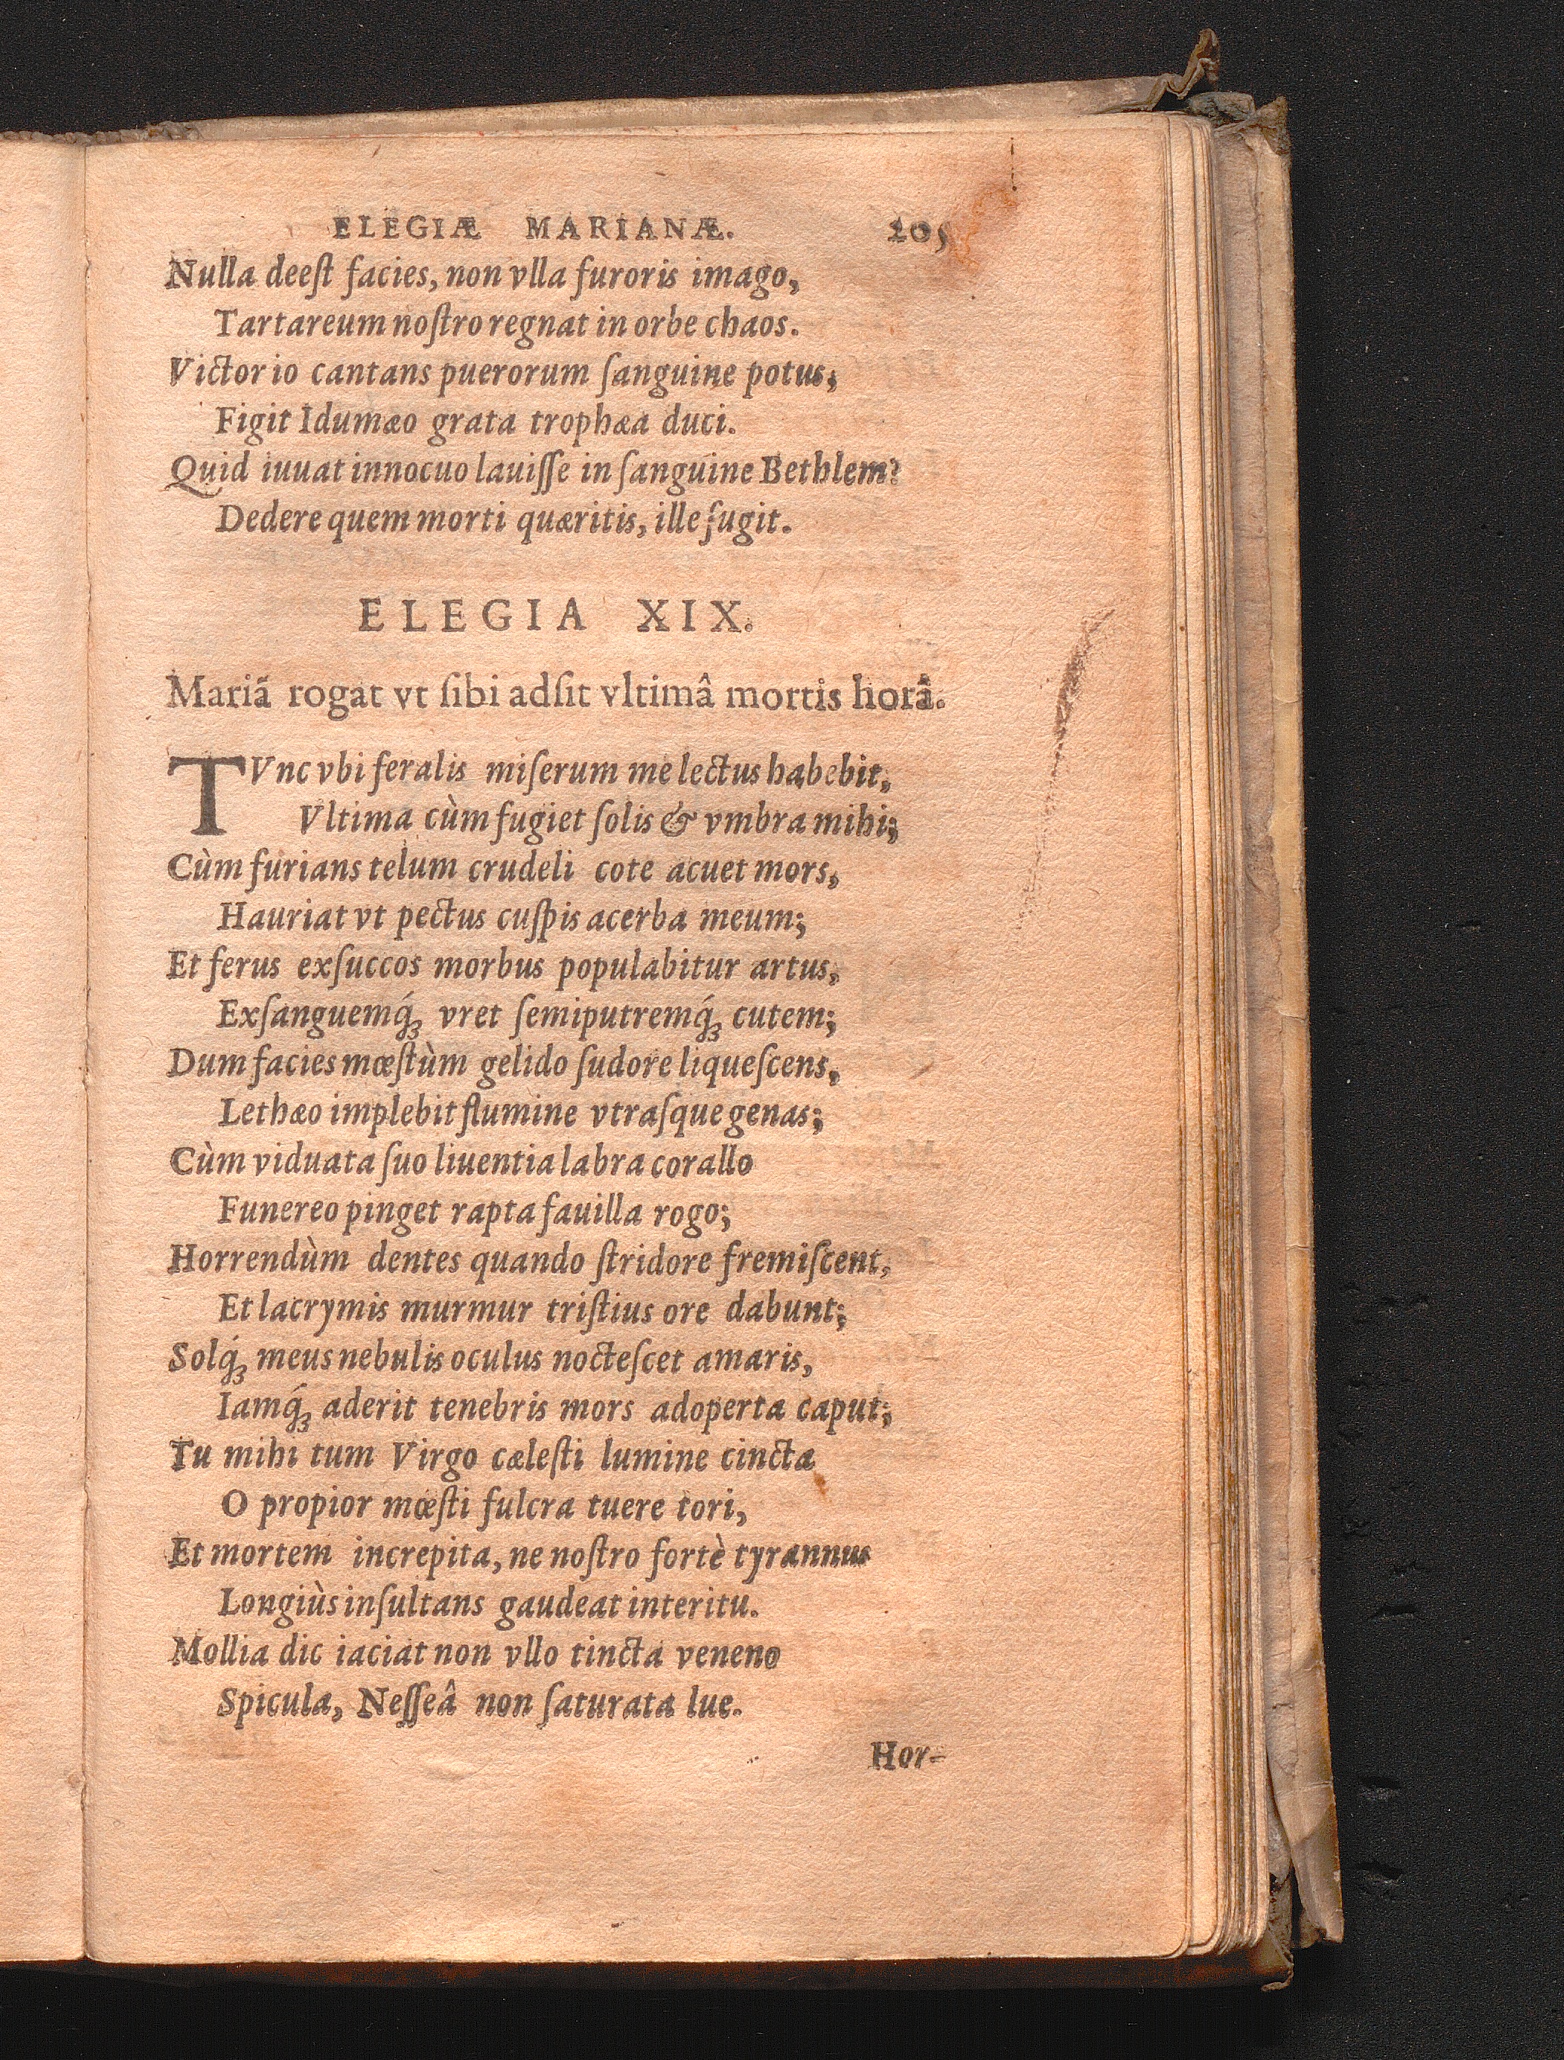 ELEGIÆ MARIANÆ. 205
Nulla deeſt facies, non vlla furoris imago,
Tartareum noſtro regnat in orbe chaos.
Victor io cantans puerorum ſanguine potus,
Figit Idumæo grata trophæa duci.
Quid iuuat innocuo lauiſſe in ſanguine Bethlem?
Dedere quem morti quæritis, ille fugit.
ELEGIA XIX.
Mariã rogat vt ſibi adſit vltimâ mortis horâ.
TVnc vbi feralis miſerum me lectus habebit,
Vltima cùm fugiet ſolis & vmbra mihi;
Cùm furians telum crudeli cote acuet mors,
Hauriat vt pectus cuſpis acerba meum;
Et ferus exſuccos morbus populabitur artus,
Exſanguemq́ꝫ vret ſemiputremq́ꝫ cutem;
Dum facies mœſtùm gelido ſudore liqueſcens,
Lethæo implebit flumine vtraſque genas;
Cùm viduata ſuo liuentia labra corallo
Funereo pinget rapta fauilla rogo;
Horrendùm dentes quando ſtridore fremiſcent,
Et lacrymis murmur triſtius ore dabunt;
Solq́ꝫ meus nebulis oculus nocteſcet amaris,
Iamq́ꝫ aderit tenebris mors adoperta caput;
Tu mihi tum Virgo cæleſti lumine cincta
O propior mœſti fulcra tuere tori,
Et mortem increpita, ne noſtro fortè tyrannus
Longiùs inſultans gaudeat interitu.
Mollia dic iaciat non vllo tincta veneno
Spicula, Neſſeâ non ſaturata lue.
Hor-